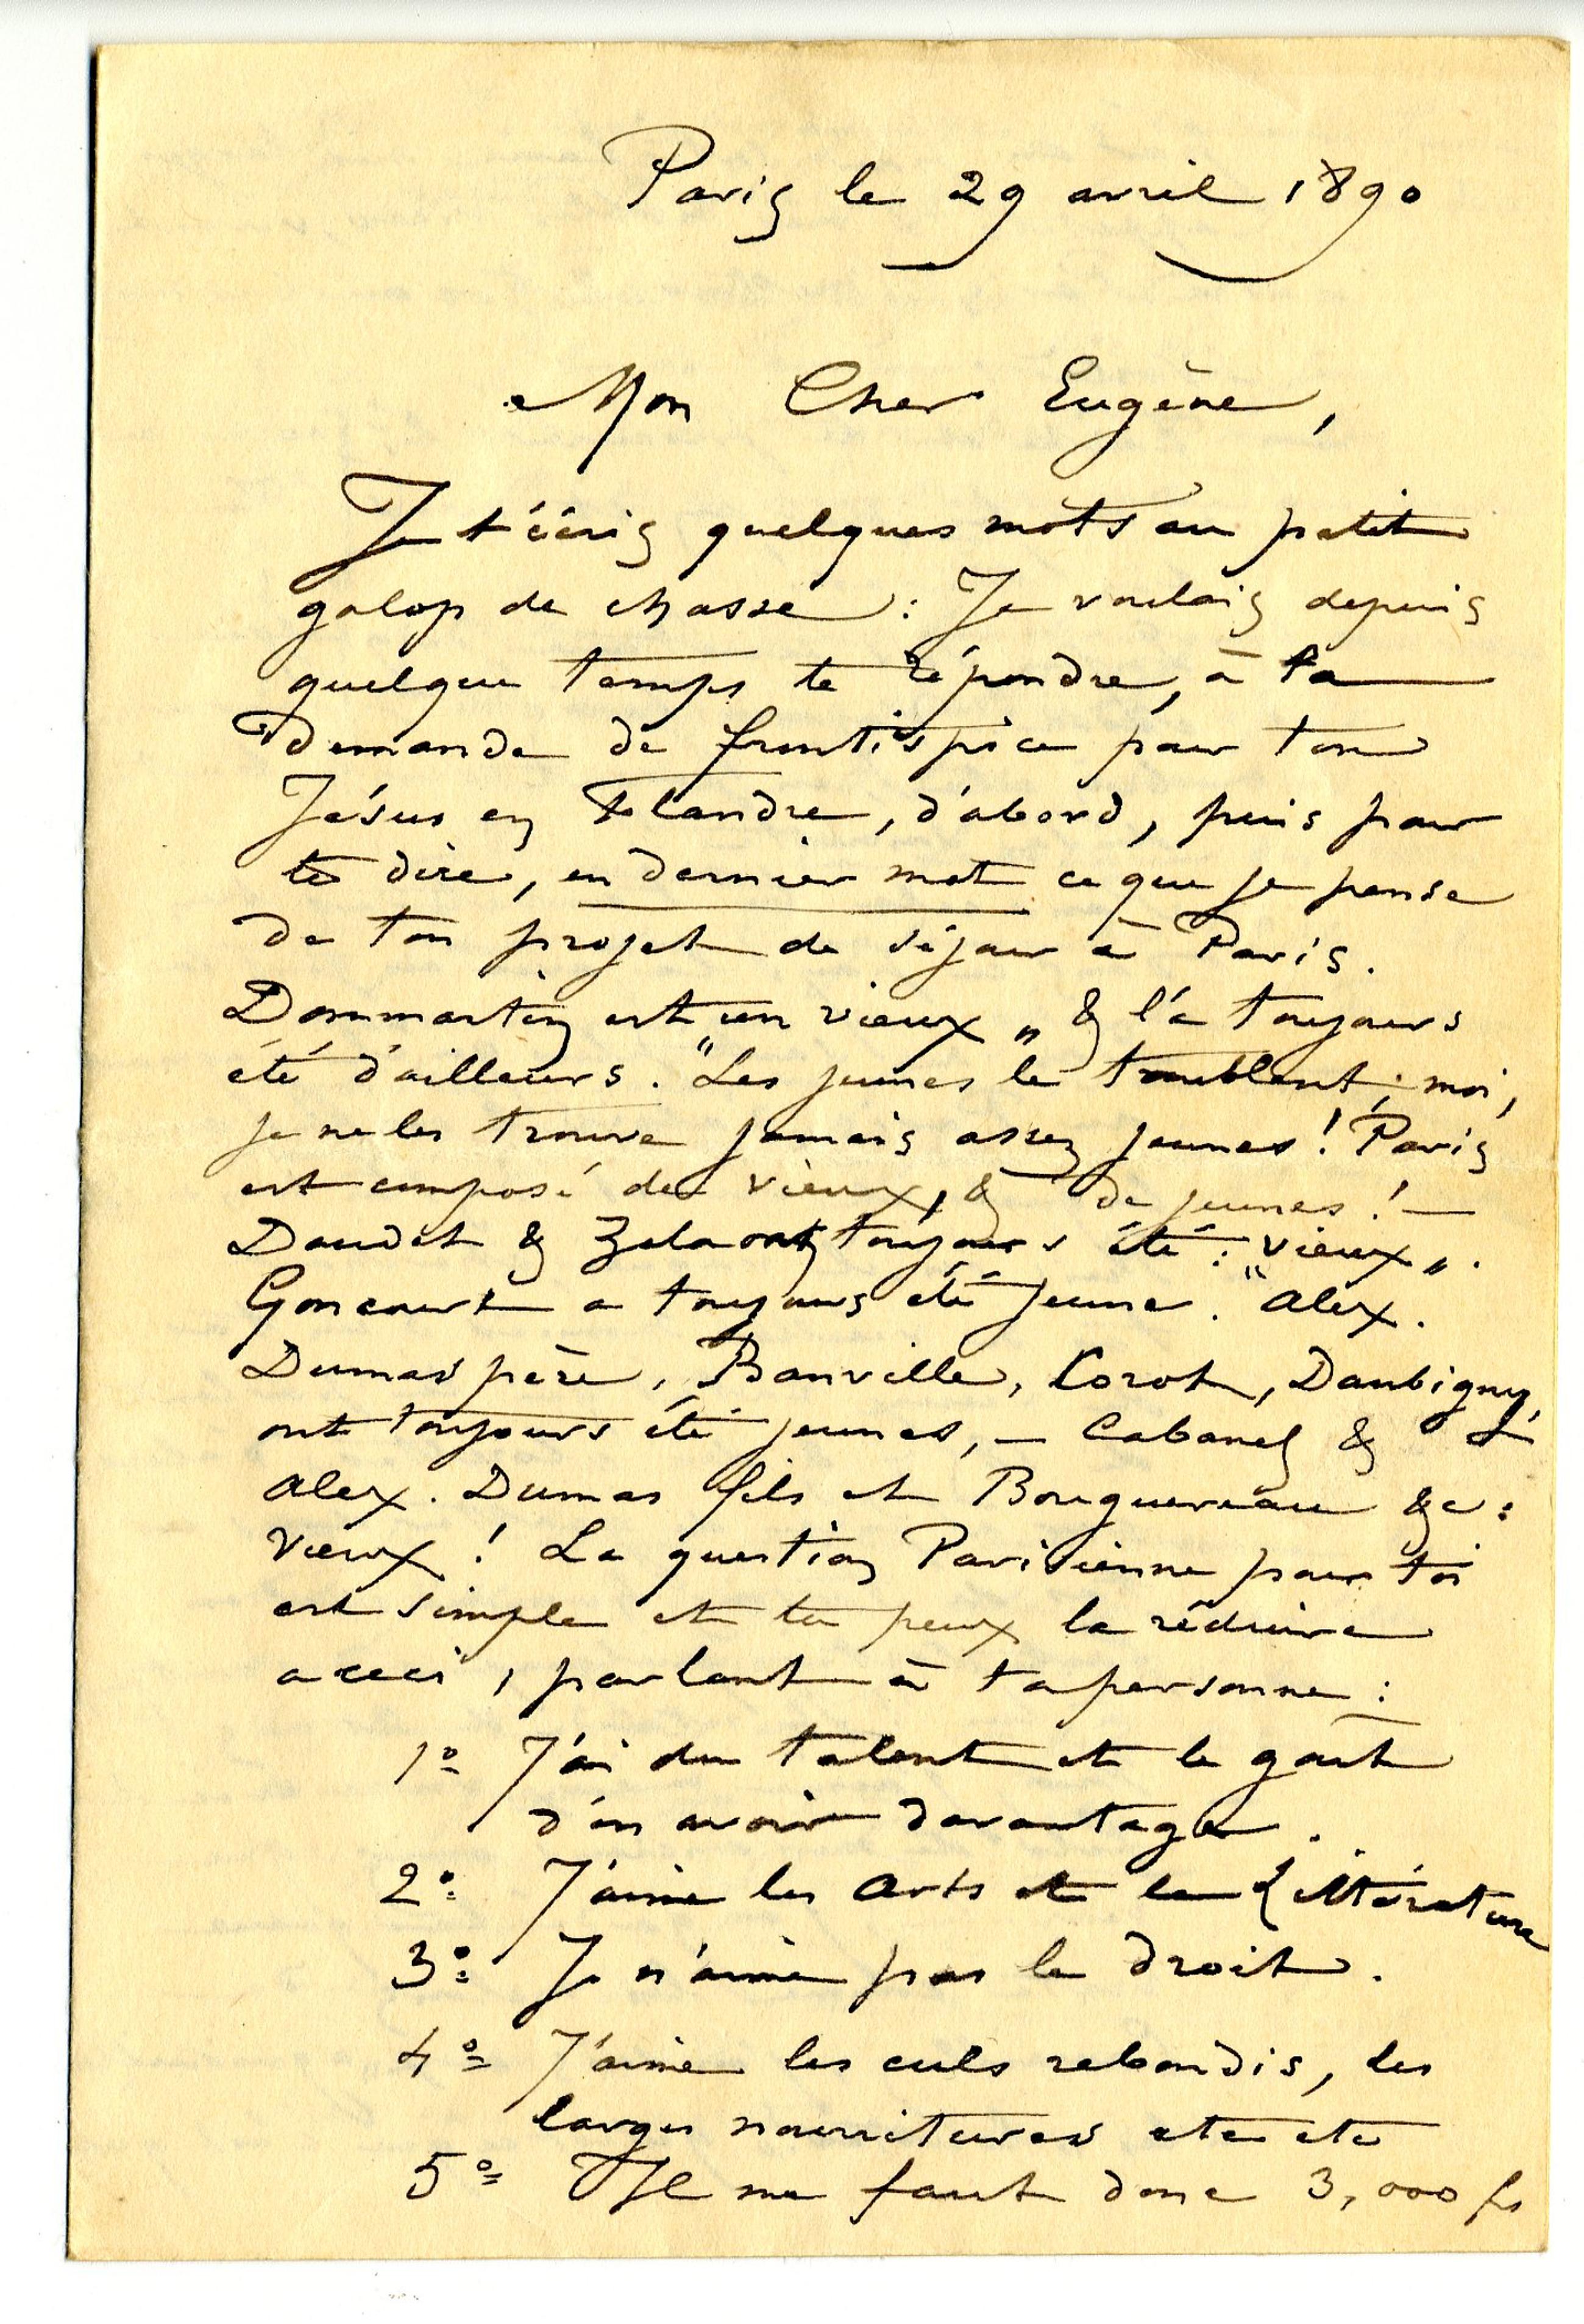 Paris le 29 avril 1890
Mon Cher Eugène,
Je t'écris quelques mots au petit
galop de chasse : Je voulais depuis
quelque temps te répondre, à ta
demande de frontispice pour ton
Jésus en Flandre, d'abord, puis pour
te dire, en dernier mot ce que je pense
de ton projet de séjour à Paris.
Dommartin est „un vieux„ & l'a toujours
été d'ailleurs. "Les jeunes le troublent ; moi,
je ne les trouve jamais assez jeunes ! Paris
est composé de vieux, & de jeunes ! —
Daudet & Zola ont toujours été : "vieux„.
Goncourt a toujours été jeune. "Alex.
Dumas père, Banville, Corot, Daubigny,
ont toujours été jeunes, — Cabanel &
Alex. Dumas fils et Bouguereau &c :
vieux ! La question Parisienne pour toi
est simple et tu peux la réduire
a ceci, parlant à ta personne :
1º J'ai du talent et le goût
d'en avoir davantage.
2º J'aime les Arts et la Littérature
3º Je n'aime pas le droit.
4º J'aime les culs rebondis, les
larges nourritures etc etc
5º Il me faut donc 3,000 fs